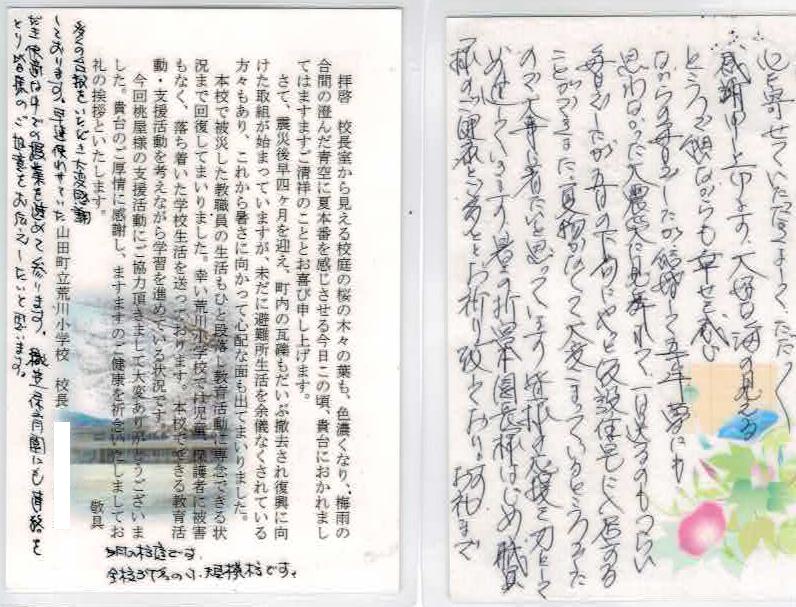 拝啓　校長室から見える校庭の桜の木々の葉も、色濃くなり、梅雨の
合間の澄んだ青空に夏本番を感じさせる今日この頃、貴台におかれまし
てはますますご清祥のこととお喜び申し上げます。
さて、震災後早四ヶ月を迎え、町内の瓦礫もだいぶ撤去され復興に向
けた取組が始まっていますが、未だに避難所生活を余儀なくされている
方々もあり、これから暑さに向かって心配な面も出てまいりました。
本校で被災した教職員の生活もひと段落し教育活動に専念できる状
況まで回復してまいりました。幸い荒川小学校では児童、保護者に被害
もなく、落ち着いた学校生活を送っております。本校でできる教育活
動・支援活動を考えながら学習を進めている状況です。
今回桃屋様の支援活動にご協力頂きまして大変ありがとうございま
した。貴台のご厚情に感謝し、ますますのご健康を祈念いたしましてお
礼の挨拶といたします。
敬具
山田町立荒川小学校　校長
多くの台板をいただき大変感謝
しております。早速使わせていた
だき快適な中での授業を進めて参ります。織笠保育園にも直接を
とり皆様のご好意をお伝えしたいと思います。
全校が です。
心を寄せていただきまして、ただただ
感謝申し上げます。大好きな海の見える
ところで 幸せを感じ
ながらの毎日でしたが、結婚して五年
思わなかった大震災に見舞われて、一日送るのもつらい
毎日でしたが五月の下旬にやっと仮設住宅に入居する
ことができました。夏物がなくて大変こまっているところでした
ので大事に着たいと思っています。皆様の応援を力として
暑さの折 園長様はじめ職員
様のご健康を お祈り致しております。
お礼まで